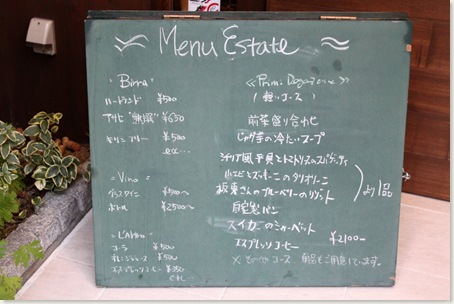 Menu Estate
・Birra・
ハートランド ¥500
アサヒ "無濾" ¥650
キリンフリー ¥500
ecc...
・Vino・
グラスワイン ¥500〜
ボトル ¥2500〜
コーラ ¥500
オレンジジュース ¥500
エスプレッソコーヒー ¥350
《Primi
(軽いコース)
前菜盛り合わせ
じゃが芋の冷たいスープ
シチリア風 平貝とトマトソースのスパゲッティ
小エビとズッキーニのタリオリーニ
板東さんのブルーベリーのリゾット
より1品
自家製パン
スイカのシャーベット
エスプレッソコーヒー ¥2100ー
コース 御用意しています。